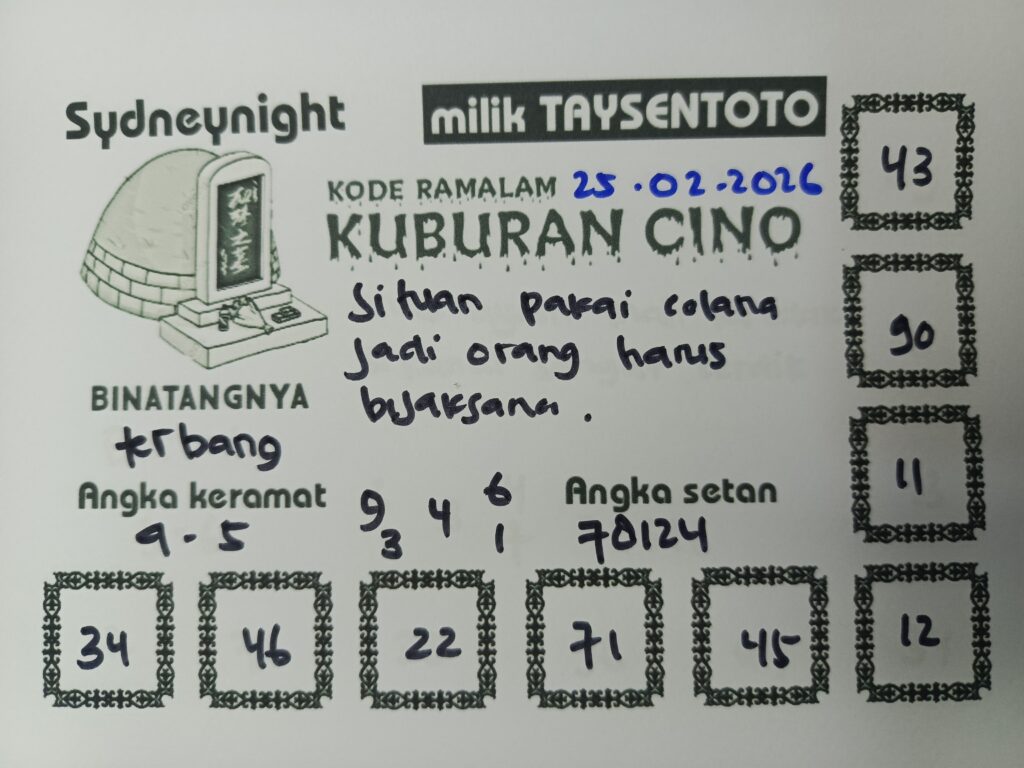 Sydneynight
milik TAYSENTOTO
KODE RAMALAM 25.02.2026
KUBURAN CINO
Si tuan pakai celana
Jadi orang harus
bijaksana.
BINATANGNYA
terbang
Angka keramat
9 - 5
9 4 6
3 1
Angka setan
70124
43
90
11
12
34 46 22 71 45